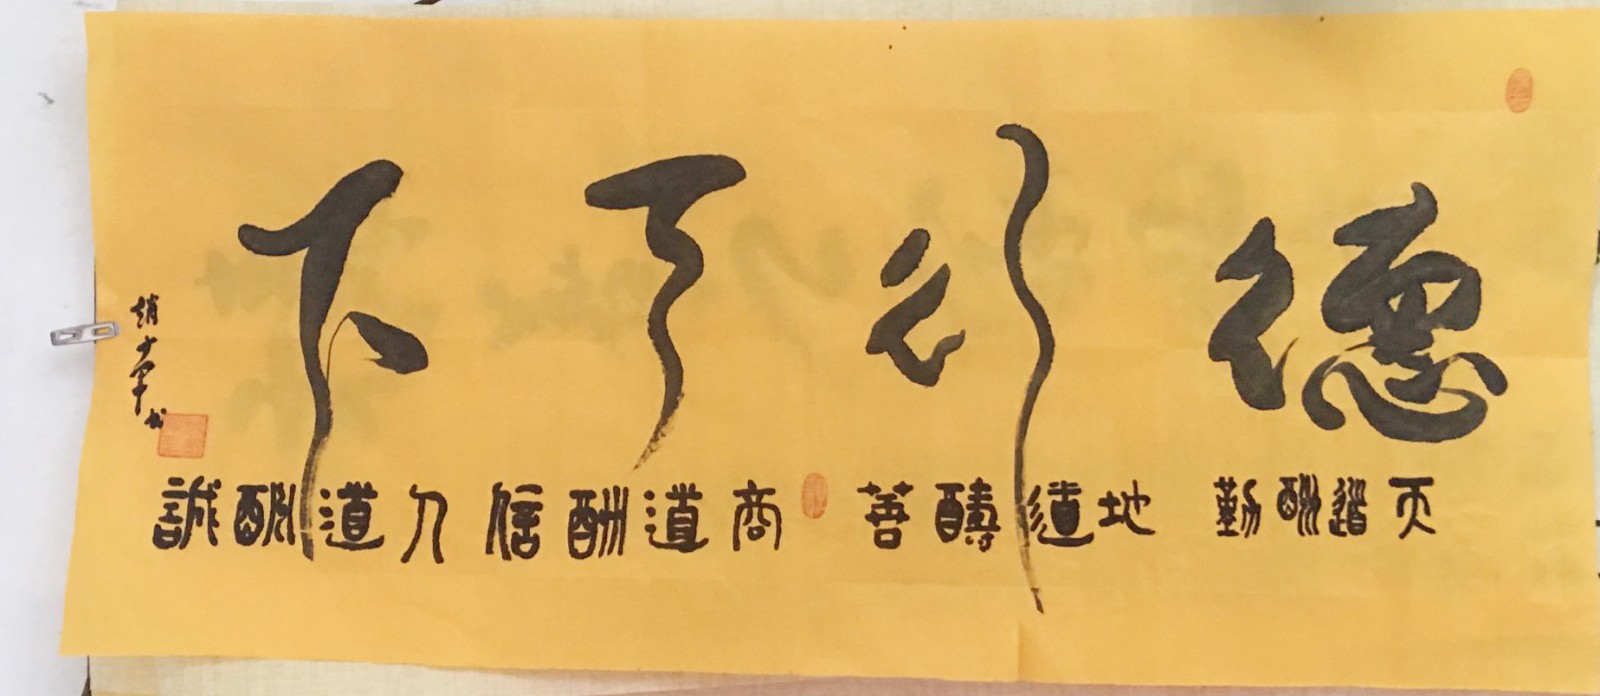 德行天下
天道酬勤 地道酬善 商道酬信 人道酬誠
趙少軍书